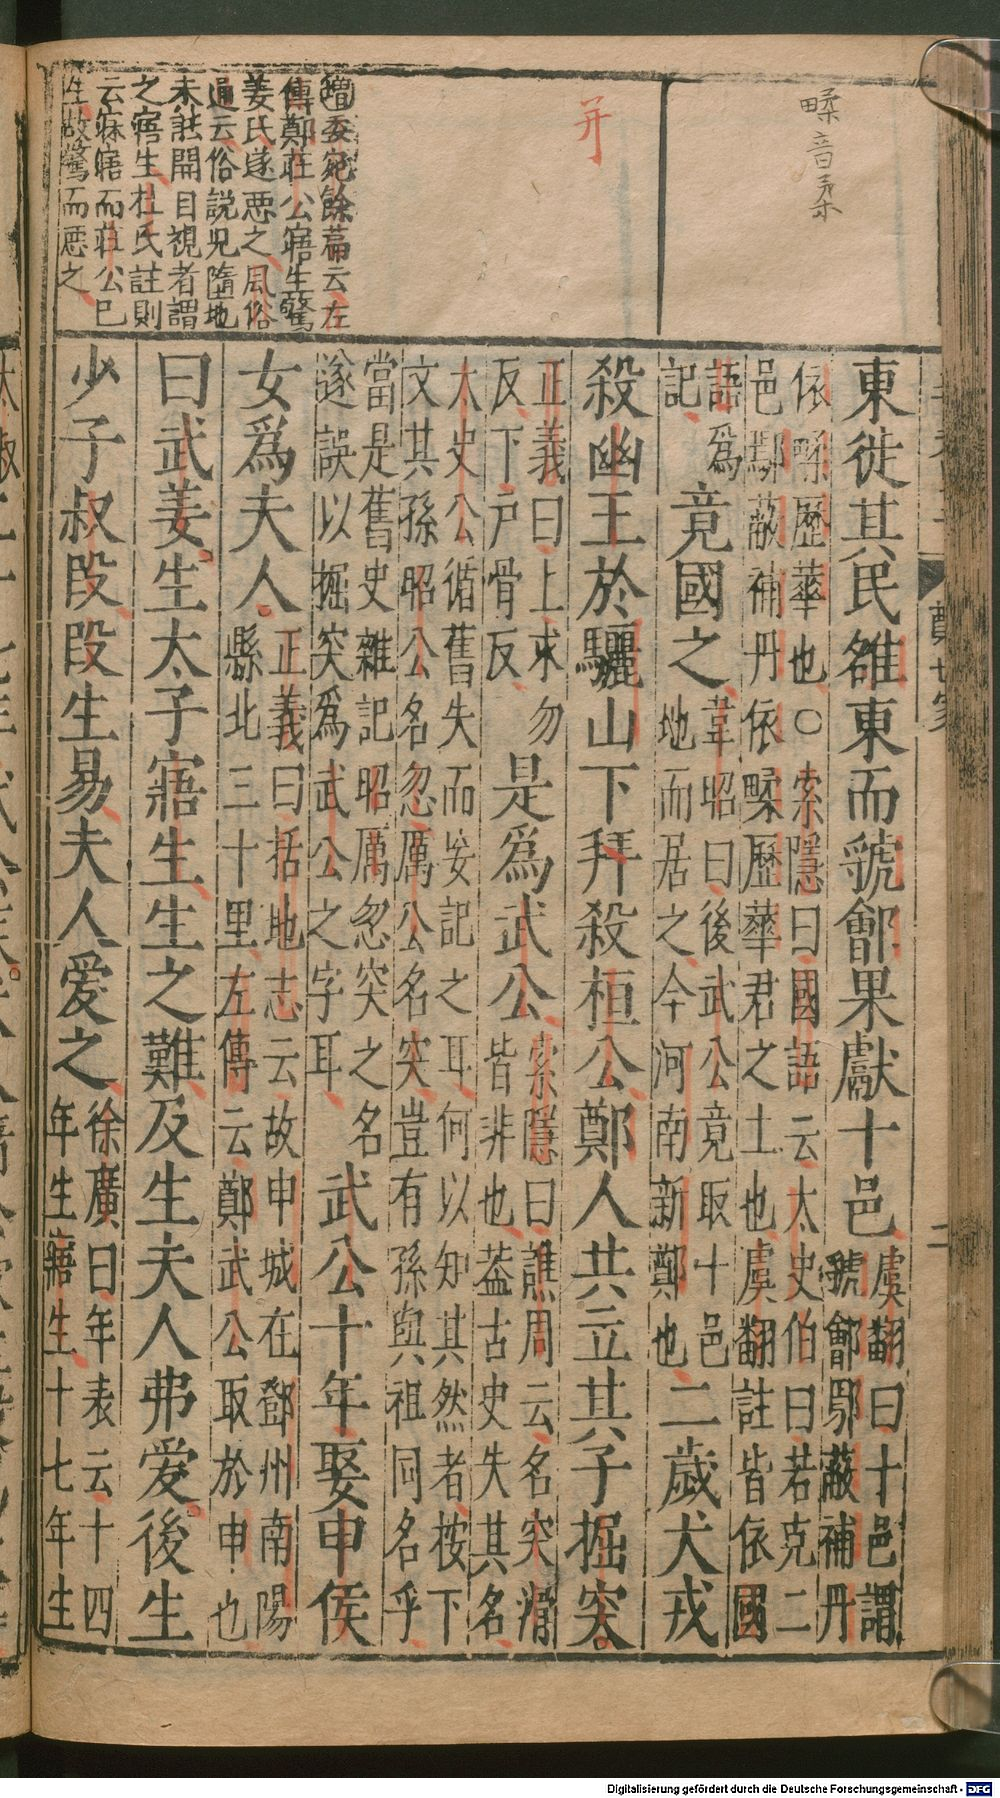 𤲬音柔
并
增委宛餘篇云左
傳鄭莊公寤生驚
姜氏遂惡之風俗
通云俗說兒墮地
未能開目視者謂
之寤生杜氏註則
云寐寤而莊公已
生故驚而惡之
鄭世家
二
東徙其民雒東而虢鄶果獻十邑虞翻曰十邑謂虢鄶鄢蔽補丹
依𤲬歷華也○索隱曰國語云太史伯曰若克二邑鄢蔽補丹依𤲬歷華君之土也虞翻註皆依國
語爲記竟國之韋昭曰後武公竟取十邑地而居之今河南新鄭也二歲犬戎
殺幽王於驪山下拜殺桓公鄭人共立其子掘突
正義曰上求勿反下戶骨反是爲武公索隱曰譙周云名突滑皆非也蓋古史失其名
太史公循舊失而妄記之耳何以知其然者按下文其孫昭公名忽厲公名突豈有孫與祖同名乎
當是舊史雜記昭厲忽突之名遂誤以掘突爲武公之字耳武公十年娶申侯
女爲夫人正義曰括地志云故申城在鄧州南陽縣北三十里左傳云鄭武公取於申也
曰武姜生太子寤生生之難及生夫人弗愛後生
少子叔段段生易夫人愛之徐廣曰年表云十四年生寤生十七年生
Digitalisierung gefördert durch die Deutsche Forschungsgemeinschaft - DFG